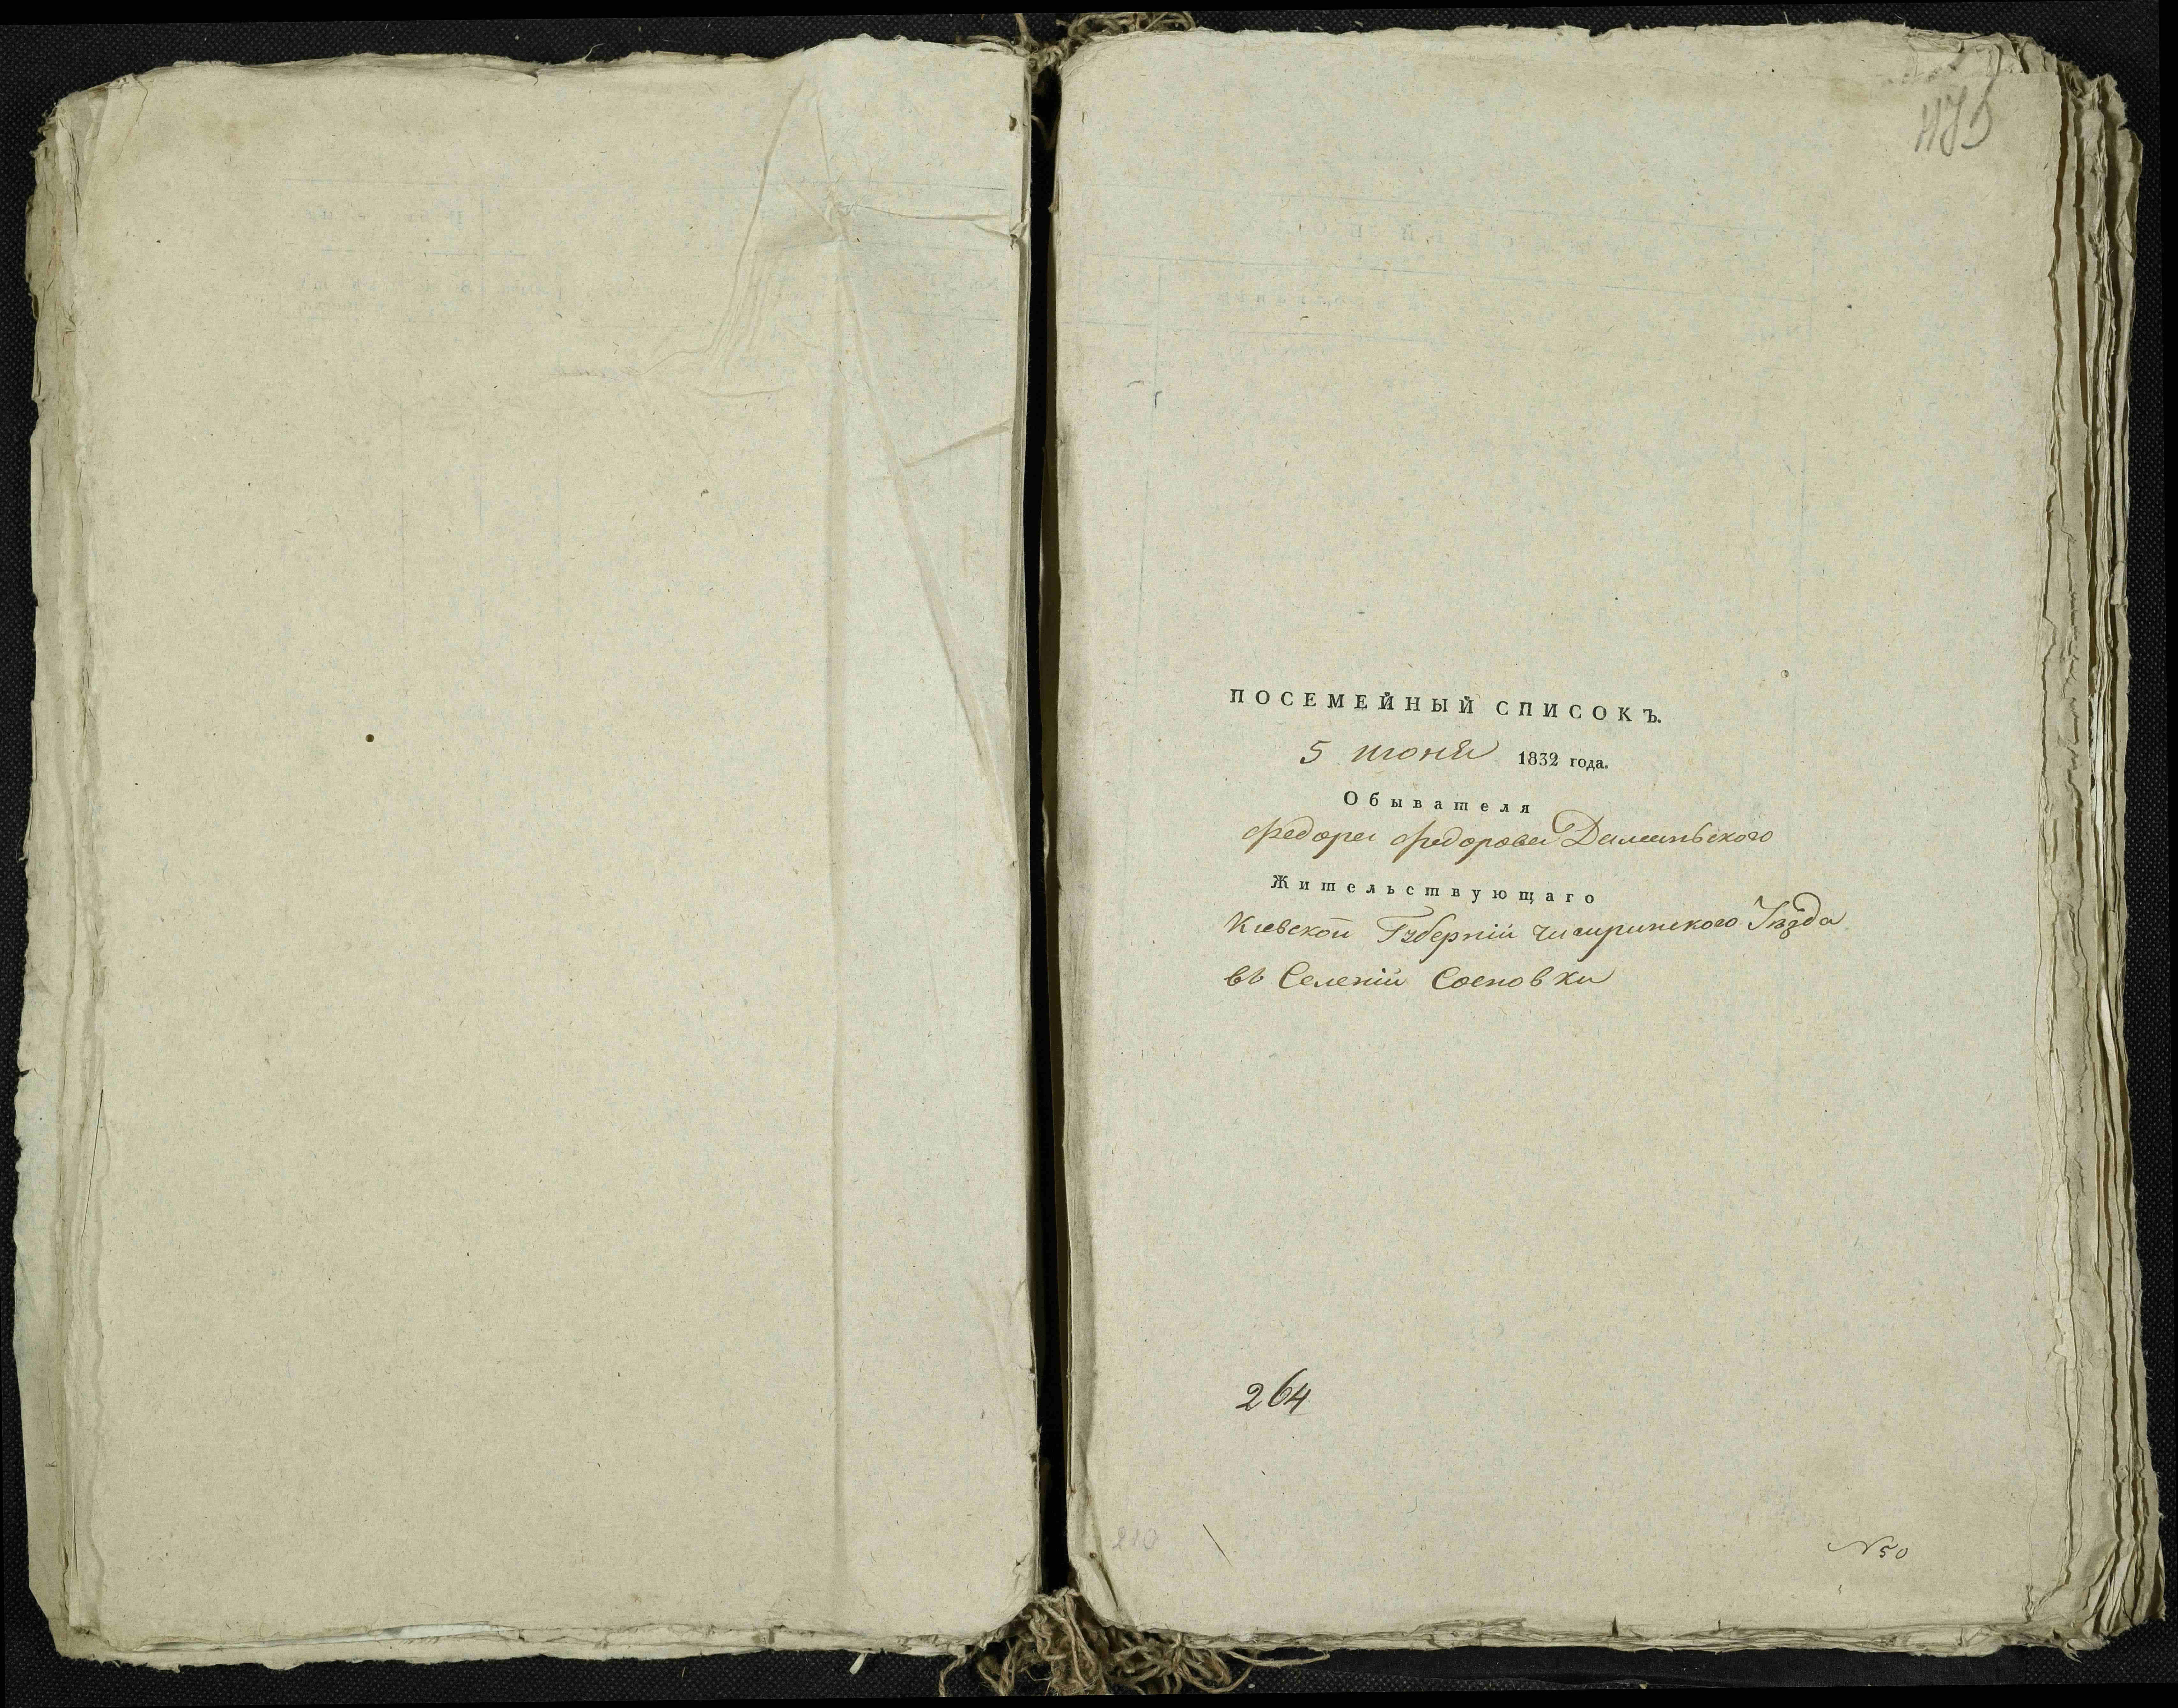 ПОСЕМЕЙНЫЙ СПИСОКЪ.
5 июня 1832 года.
Обывателя
Федора Федорова
Жительствующаго
Киевской Губерніи Чигиринского Уѣзда
въ Селеніи Сосновки
264
210
N 50